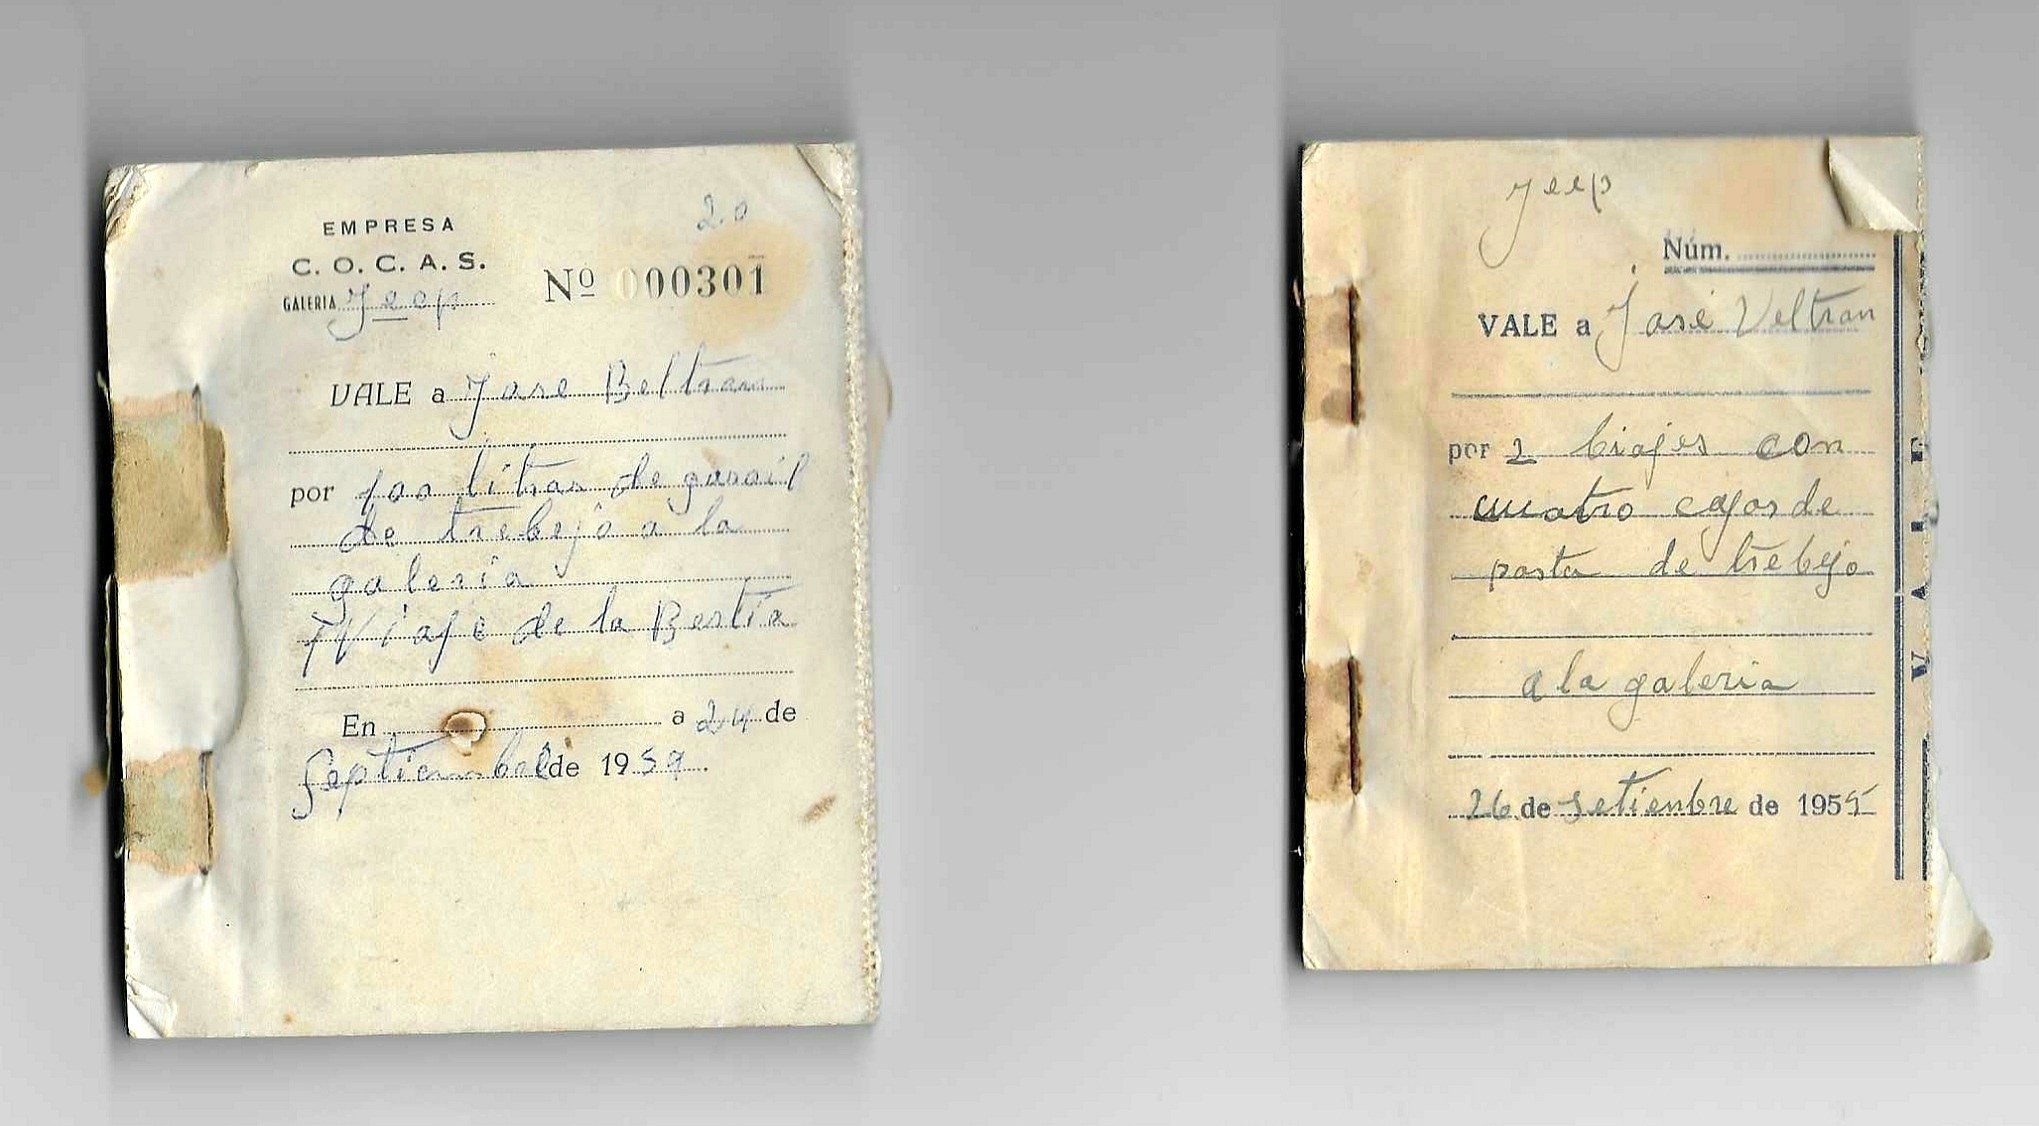 20
EMPRESA
C. O. C. A. S.
GALERIA Jeep
Nº 000301
VALE a Jose Beltran
por 100 litros de gasoil
de trebejo a la
galeria
1 Viaje de la Bestia
En a 24 de
Septiembre de 1959.
Jeep
Núm.
VALE a José Veltran
por 2 biajes con
cuatro cajas de
pasta de trebejo
a la galeria
26 de Setienbre de 195
VALE